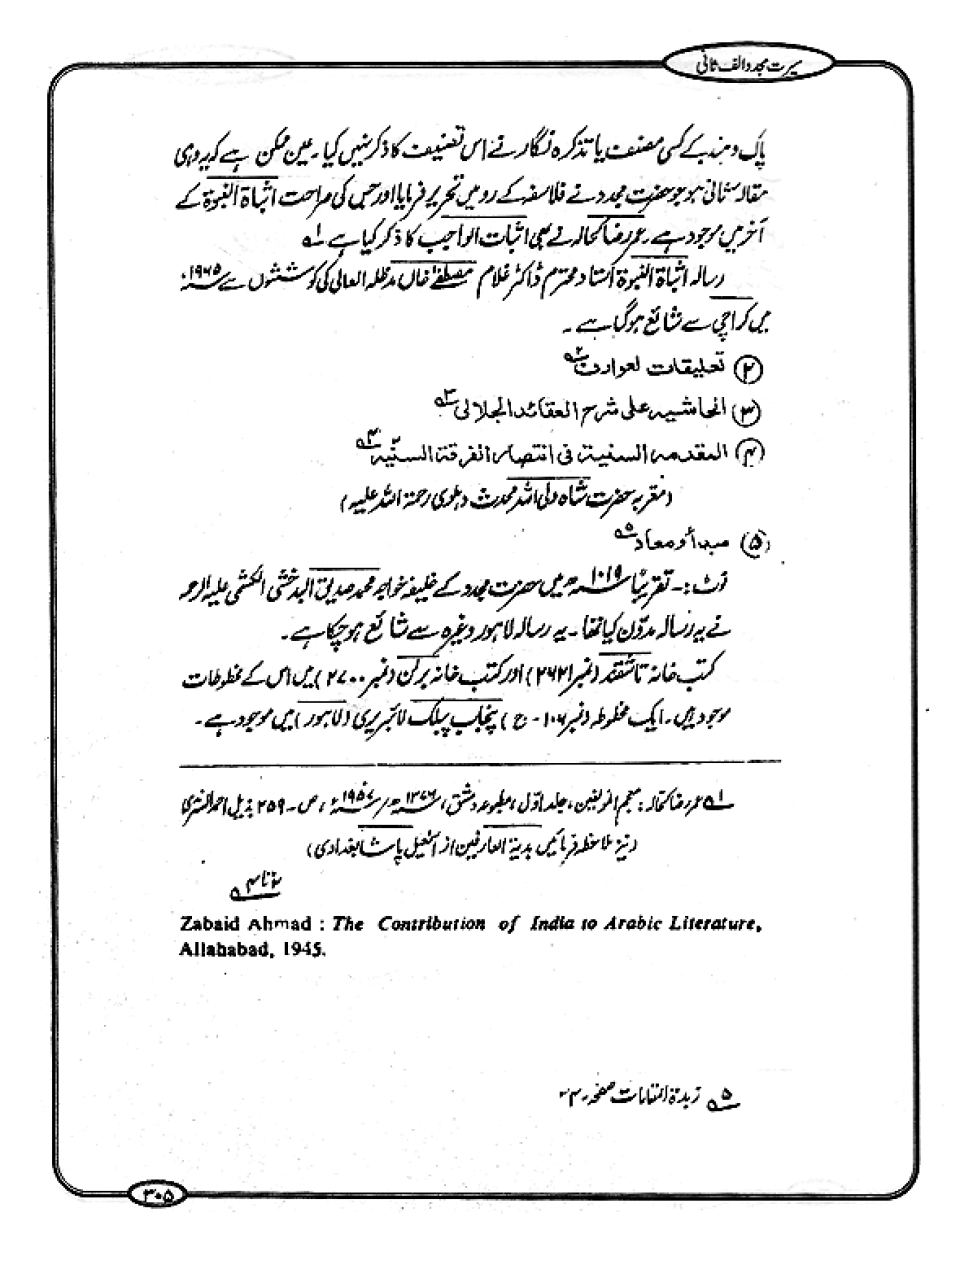 سیرت مجدد الف ثانی
پاک و ہند کے کسی مصنف یا تذکرہ نگار نے اس تصنیف کا ذکر نہیں کیا۔ عین ممکن ہے کہ یہ وہی
مقالہ ثانی ہو جو حضرت مجدد نے فلاسفہ کے رد میں تحریر فرمایا اور جس کی صراحت اثباۃ النبوۃ کے
آخر میں موجود ہے۔ عمر رضا کحالہ نے بھی اثبات الواجب کا ذکر کیا ہے ۱ھ
رسالہ اثباۃ النبوۃ استاد محترم ڈاکٹر غلام مصطفےٰ خاں مدظلہ العالی کی کوششوں سے ۱۹۶۵ء
میں کراچی سے شائع ہوگیا ہے۔
(۲) تعلیقات لعوارف ۲ھ
(۳) الحاشیہ علی شرح العقائد الجلالی ۳ھ
(۴) المقدمہ السنیۃ فی انتصار الفرقۃ السنیہ ۴ھ
(معربہ حضرت شاہ ولی اللہ محدث دہلوی رحمۃ اللہ علیہ)
(۵) مبدأ و معاد ۵ھ
نوٹ:۔ تقریباً ۱۰۱۹ھ میں حضرت مجدد کے خلیفہ خواجہ محمد صدیق البدخشی الکشمی علیہ الرحمہ
نے یہ رسالہ مدوّن کیا تھا۔ یہ رسالہ لاہور وغیرہ سے شائع ہوچکا ہے۔
کتب خانہ تاشقند (نمبر ۲۶۲۱) اور کتب خانہ برلن (نمبر ۲۷۰۰) میں اس کے مخطوطات
موجود ہیں۔ ایک مخطوطہ (نمبر ۱۰۶۔ ج) پنجاب پبلک لائبریری (لاہور) میں موجود ہے۔
۱ھ عمر رضا کحالہ: معجم المولفین، جلد اوّل، مطبوعہ دمشق، ۱۳۷۶ھ/۱۹۵۷ء، ص۔ ۲۵۹ بذیل احمد السہرندی
(نیز ملاحظہ فرمائیں ہدیۃ العارفین از اسمٰعیل پاشا بغدادی)
۲ تا ۴ھ
Zabaid Ahmad : The Contribution of India to Arabic Literature,
Allahabad, 1945.
۵ھ زبدۃ المقامات صفحہ
۳۰۵